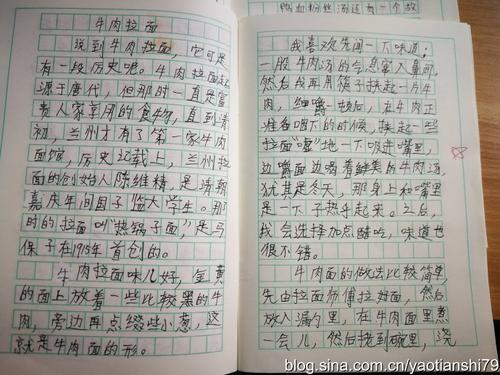 牛肉拉面
说到牛肉拉面，它可是
有一段历史呢。牛肉拉面起
源于唐代，但那时一直是富
贵人家享用的食物，直到清
初，兰州才有了第一家牛肉
面馆，历史记载上，兰州拉
面的创始人陈维精，是清朝
嘉庆年间国子监太学生。那
时的拉面叫“热锅子面”，是马
保子在1915年首创的。
牛肉拉面味儿好，金黄
的面上放着一些比较黑的牛
肉，旁边再点缀些小葱，这
就是牛肉面的形。
鸭血粉丝汤还有一个故
我喜欢先闻一下味道。
一股牛肉汤的气息窜入鼻间。
然后我再用筷子挟起一片牛
肉，细嚼一顿后，在牛肉正
准备咽下的时候，挟起一些
拉面“嗖”地一下吸进嘴里，
边嚼面边喝着鲜美的牛肉汤，
犹其是冬天，那身上和嘴里
是一下子热乎起来。之后，
我会选择加点醋吃，味道也
很不错。
牛肉面的做法比较简单，
先由拉面师傅拉好面，然后
放入漏勺里，在牛肉面里煮
一会儿，然后捞到碗里，浇
blog.sina.com.cn/yaotianshi79